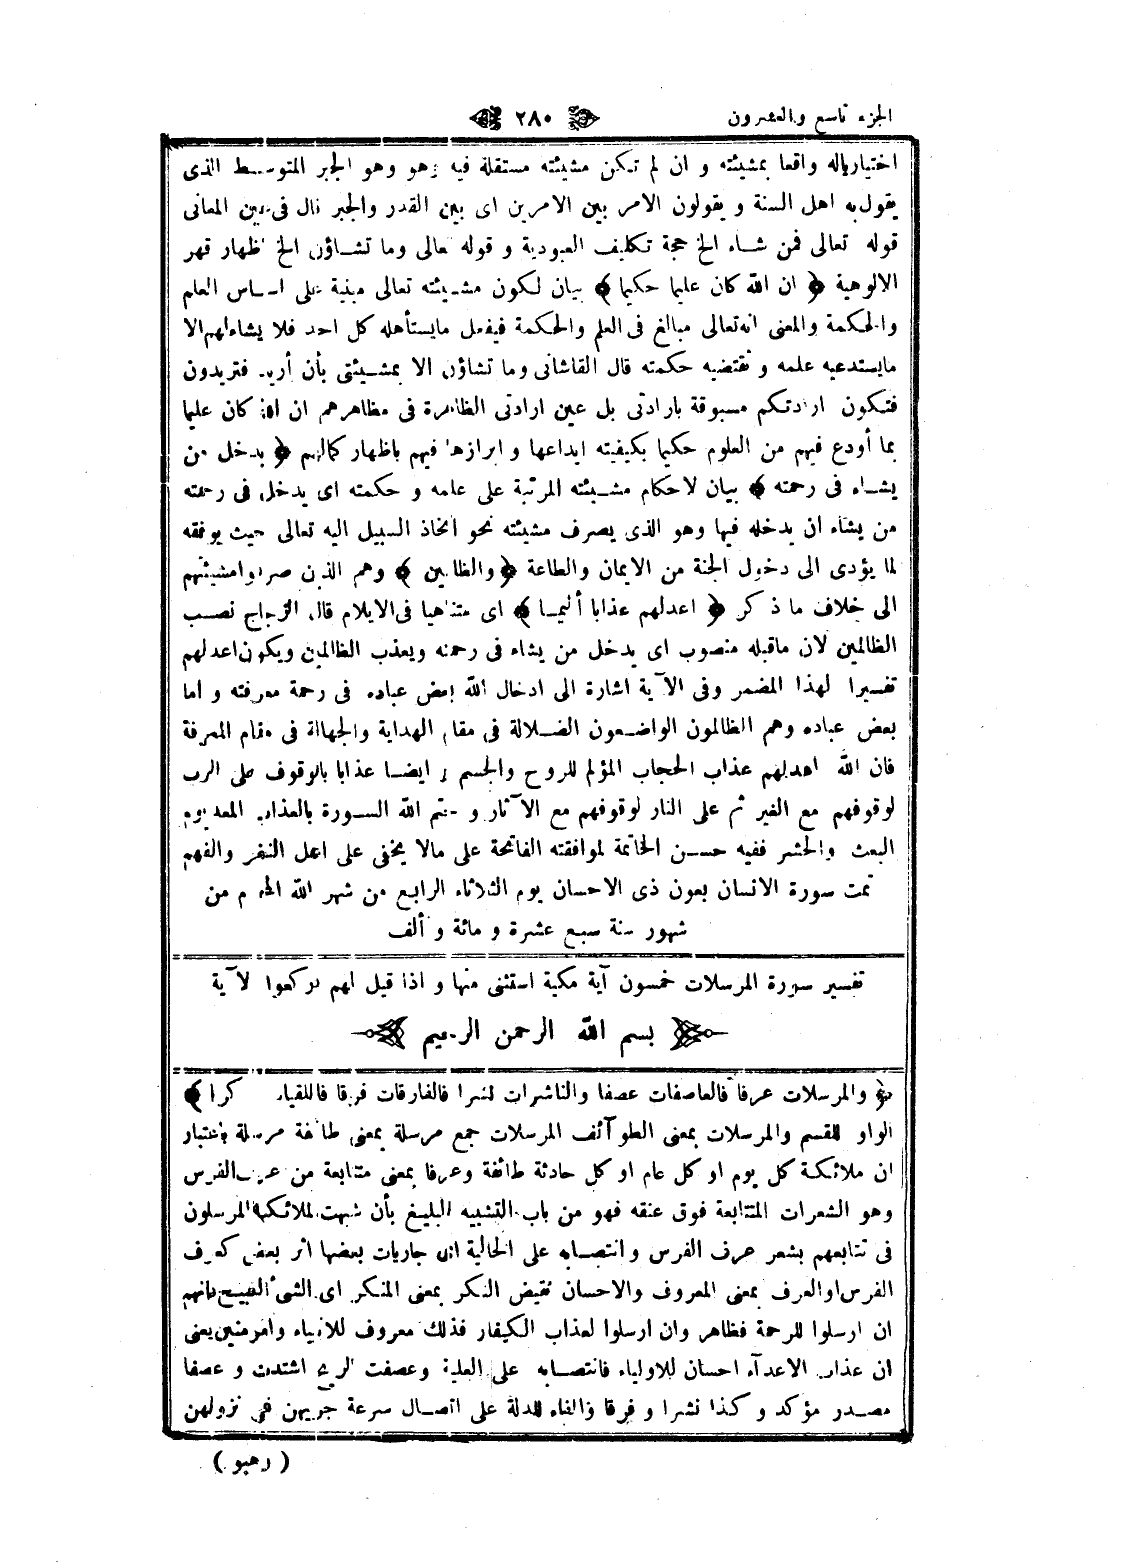 الجزء تاسع والعشرون
٢٨٠
اختيارياله واقعا بمشيئته و ان لم تكن مشيئته مستقلة فيه وهو وهو الجبر المتوسط الذى
يقول به اهل السنة و يقولون الامر بين الامرين اى بين القدر والجبر قال فى عين المعانى
قوله تعالى فمن شاء الخ حجة تكليف العبودية و قوله تعالى وما تشاؤن الخ اظهار قهر
الالوهية ﴿ ان الله كان عليما حكيما ﴾ بيان لكون مشيئته تعالى مبنية على اساس العلم
والحكمة والمعنى انه تعالى مبالغ فى العلم والحكمة فيفعل مايستأهله كل احد فلا يشاء لهم الا
مايستدعيه علمه و تقتضيه حكمته قال القاشانى وما تشاؤن الا بمشيئتى بأن أريد فتريدون
فتكون ارادتكم مسبوقة بارادتى بل عين ارادتى الظاهرة فى مظاهرهم ان الله كان عليما
بما أودع فيهم من العلوم حكيما بكيفيته ايداعها و ابرازها فيهم باظهار كمالهم ﴿ يدخل من
يشاء فى رحمته ﴾ بيان لاحكام مشيئته المرتبة على علمه و حكمته اى يدخل فى رحمته
من يشاء ان يدخله فيها وهو الذى يصرف مشيئته نحو اتخاذ السبيل اليه تعالى حيث يوفقه
لما يؤدى الى دخول الجنة من الايمان والطاعة ﴿ والظالمين ﴾ وهم الذين صرفوا مشيئتهم
الى خلاف ما ذكر ﴿ اعدلهم عذابا أليما ﴾ اى متناهيا فى الايلام قال الزجاج نصب
الظالمين لان ماقبله منصوب اى يدخل من يشاء فى رحمته ويعذب الظالمين ويكون اعدلهم
تفسيرا لهذا المضمر وفى الآية اشارة الى ادخال الله بعض عباده فى رحمة معرفته و اما
بعض عباده وهم الظالمون الواضعون الضلالة فى مقام الهداية والجهالة فى مقام المعرفة
فان الله اعدلهم عذاب الحجاب المؤلم للروح والجسم و ايضا عذابا بالوقوف على الرب
لوقوفهم مع الغير ثم على النار لوقوفهم مع الآثار و ختم الله السورة بالعذاب المعد يوم
البعث والحشر ففيه حسن الخاتمة لموافقته الفاتحة على مالا يخفى على اهل النظر والفهم
تمت سورة الانسان بعون ذى الاحسان يوم الثلاثاء الرابع من شهر الله المحرم من
شهور سنة سبع عشرة و مائة و ألف
تفسير سورة المرسلات خمسون آية مكية استثنى منها و اذا قيل لهم اركعوا لآية
بسم الله الرحمن الرحيم
﴿ والمرسلات عرفا فالعاصفات عصفا والناشرات نشرا فالفارقات فرقا فالملقيات ذكرا ﴾
الواو للقسم والمرسلات بمعنى الطوآئف المرسلات جمع مرسلة بمعنى طائفة مرسلة باعتبار
ان ملائكة كل يوم او كل عام او كل حادثة طائفة وعرفا بمعنى متتابعة من عرف الفرس
وهو الشعرات المتتابعة فوق عنقه فهو من باب التشبيه البليغ بأن شبهت الملائكة المرسلون
فى تتابعهم بشعر عرف الفرس و انتصابه على الحالية اى جاريات بعضها اثر بعض كعرف
الفرس او العرف بمعنى المعروف والاحسان نقيض النكر بمعنى المنكر اى الشئ القبيح فانهم
ان ارسلوا للرحمة فظاهر وان ارسلوا لعذاب الكفار فذلك معروف للانبياء والمؤمنين يعنى
ان عذاب الاعدآء احسان للاولياء فانتصابه على العلية وعصفت الريح اشتدت و عصفا
مصدر مؤكد و كذا نشرا و فرقا والفاء للدلة على اتصال سرعة جريهن فى نزولهن
( وهبو )